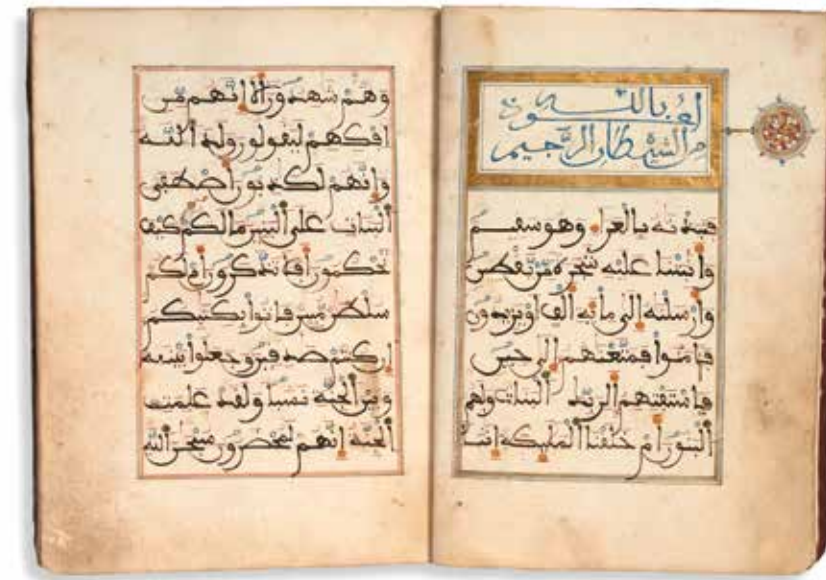 اعوذ بالله
من الشيطان الرجيم
فنبذنه بالعراء وهو سقيم
وانبتنا عليه شجرة من يقطين
وارسلنه الى مائة الف او يزيدون
فامنوا فمتعنهم الى حين
فاستفتهم الربك البنات ولهم
البنون ام خلقنا المليكة انثا
وهم شهدون الا انهم من
افكهم ليقولون ولد الله
وانهم لكذبون اصطفى
البنات على البنين ما لكم كيف
تحكمون افلا تذكرون ام لكم
سلطن مبين فاتوا بكتبكم
ان كنتم صدقين وجعلوا بينه
وبين الجنة نسبا ولقد علمت
الجنة انهم لمحضرون سبحن الله